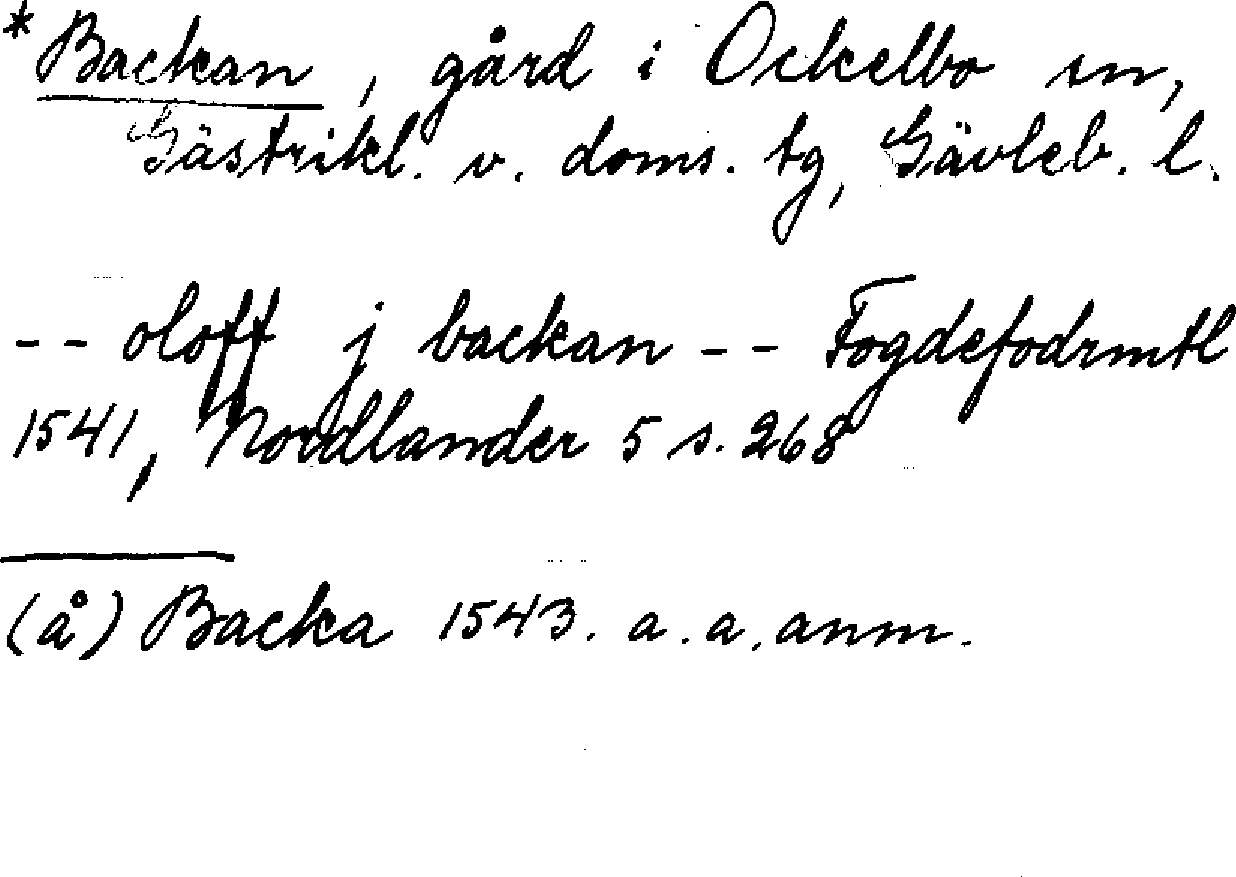 *Backan, gård i Ockelbo sn,
Gästrikl. v. doms. tg, Gävleb. l.
-- oloff j backan -- Fogdefodrmtl
1541, Nordlander 5 s. 268
(å) Backa 1543. a. a. anm.